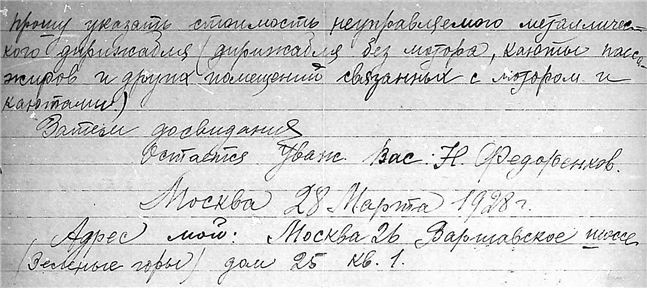 прошу указать стоимость неуправляемого металличес-
кого дирижабля (дирижабля без мотора, каюты пасса-
жиров и других помещений связанных с мотором и
каютами)
Затем досвидания
Остается Уваж. Вас: Н. Федоренков.
Москва 28 Марта 1928 г.
Адрес мой: Москва 26 Варшавское шоссе
(Зеленые горы) дом 25 кв. 1.